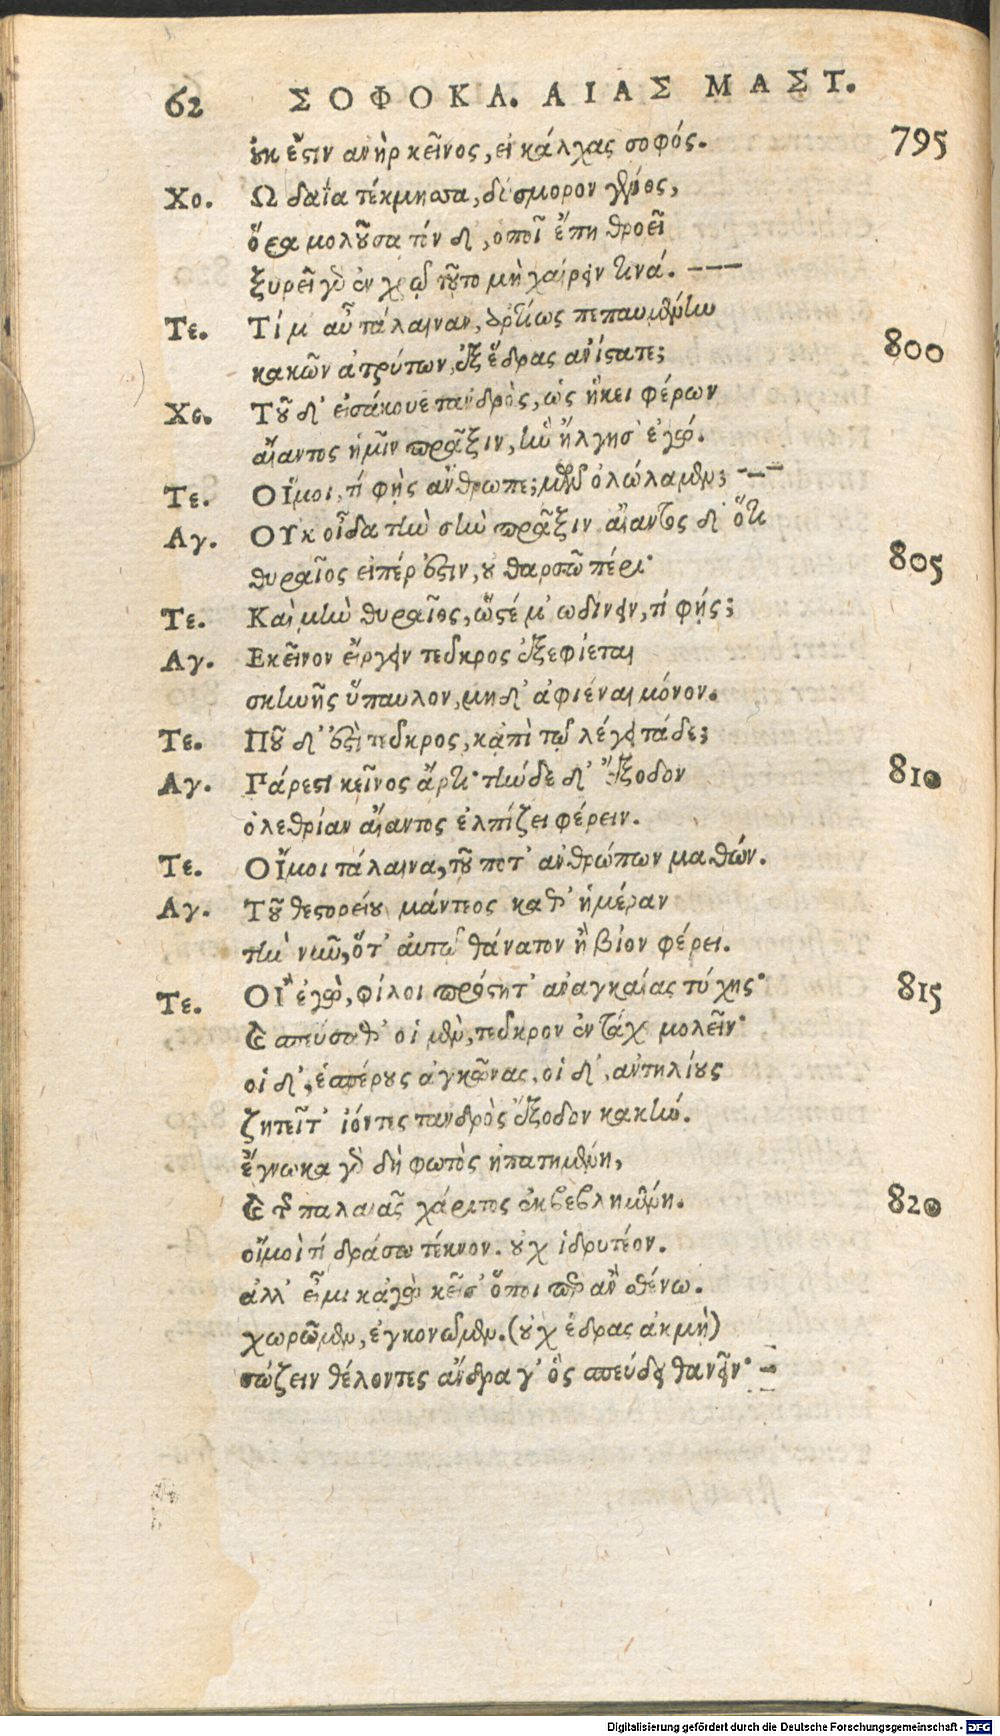 62 ΣΟΦΟΚΛ. ΑΙΑΣ ΜΑΣΤ.
οὐκ ἔστιν ἀνὴρ κεῖνος, εἰ κάλχας σοφός. 795
Χο. Ω δαΐα τέκμησσα, δύσμορον γένος,
ὅρα μολοῦσα τόνδ', ὁποῖ' ἔπη θροεῖ
ξυρεῖ γὰρ ἐν χρῷ τοῦτο μὴ χαίρειν τινά. ---
Τε. Τί μ' αὖ τάλαιναν, ἀρτίως πεπαυμένην
κακῶν ἀτρύτων, ἐξ ἕδρας ἀνίστατε; 800
Χο. Τοῦδ' εἰσάκουε τἀνδρὸς, ὡς ἥκει φέρων
αἴαντος ἡμῖν πρᾶξιν, ἣν ἤλγησ' ἐγώ.
Τε. Οἴμοι, τί φὴς ἄνθρωπε; μῶν ὀλώλαμεν; ---
Αγ. Οὐκ οἶδα τὴν σὴν πρᾶξιν αἴαντος δ' ὅτι
θυραῖος εἰπέρ ἐστιν, οὐ θαρσῶ πέρι· 805
Τε. Καὶ μὴν θυραῖος, ὥστέ μ' ὠδίνειν, τί φής;
Αγ. Εκεῖνον εἴργειν τεῦκρος ἐξεφίεται
σκηνῆς ὕπαυλον, μηδ' ἀφιέναι μόνον.
Τε. Ποῦ δ' ἐστὶ τεῦκρος, κἀπὶ τῷ λέγει τάδε;
Αγ. Πάρεστι κεῖνος ἄρτι· τήνδε δ' ἔξοδον 810
ὀλεθρίαν αἴαντος ἐλπίζει φέρειν.
Τε. Οἴμοι τάλαινα, τοῦ ποτ' ἀνθρώπων μαθών.
Αγ. Τοῦ θεστορείου μάντεος καθ' ἡμέραν
τὴν νῦν, ὅτ' αὐτῷ θάνατον ἢ βίον φέρει.
Τε. Οἲ 'γὼ, φίλοι πρόστητ' ἀναγκαίας τύχης· 815
καὶ σπεύσαθ' οἱ μὲν, τεῦκρον ἐν τάχει μολεῖν·
οἱ δ', ἑσπέρους ἀγκῶνας, οἱ δ', ἀντηλίους
ζητεῖτ' ἰόντες τἀνδρὸς ἔξοδον κακήν.
ἔγνωκα γὰρ δὴ φωτὸς ἠπατημένη,
καὶ τῆς παλαιᾶς χάριτος ἐκβεβλημένη. 820
οἴμοι τί δράσω τέκνον. οὐχ ἱδρυτέον.
ἀλλ' εἶμι κἀγὼ κεῖσ' ὅποι περ ἂν σθένω.
χωρῶμεν, ἐγκονῶμεν. (οὐχ ἕδρας ἀκμὴ)
σώζειν θέλοντες ἄνδρα γ' ὃς σπεύδει θανεῖν·
Digitalisierung gefördert durch die Deutsche Forschungsgemeinschaft - DFG